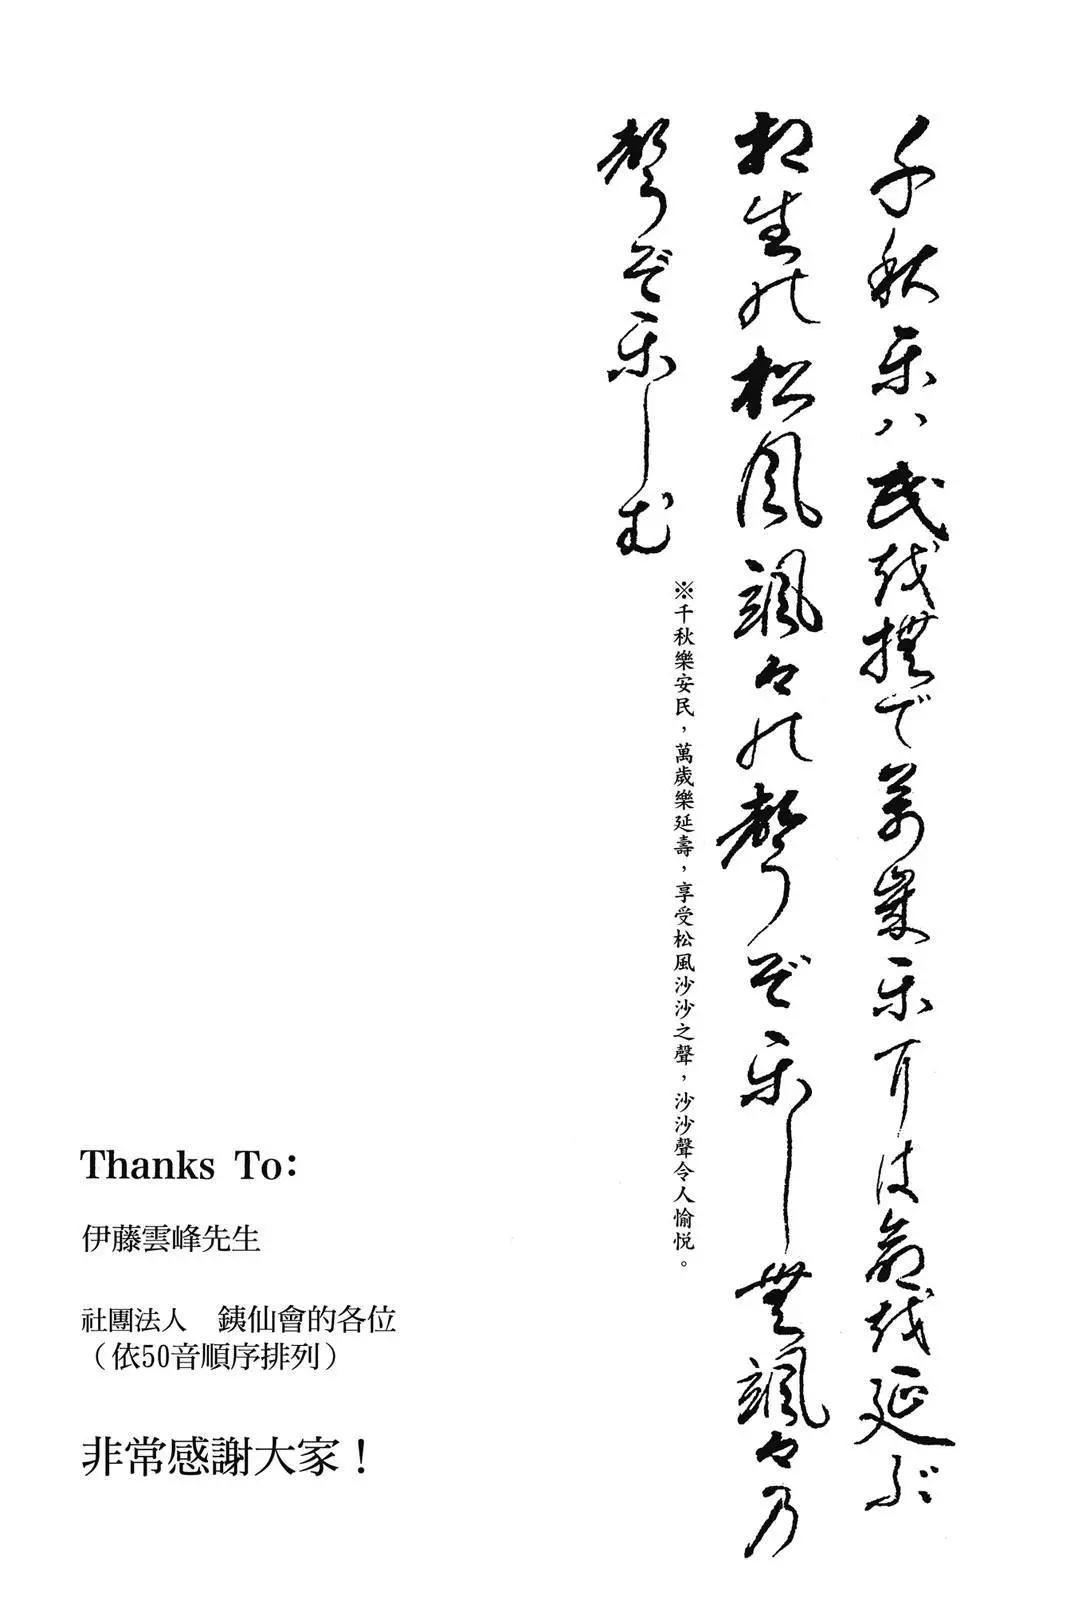 千秋楽ハ民を撫で萬歳楽には命を延ぶ
相生の松風颯々の聲ぞ楽しむ颯々の
聲ぞ楽しむ
※千秋樂安民，萬歲樂延壽，享受松風沙沙之聲，沙沙聲令人愉悅。
Thanks To：
伊藤雲峰先生
社團法人　銕仙會的各位
（依50音順序排列）
非常感謝大家！